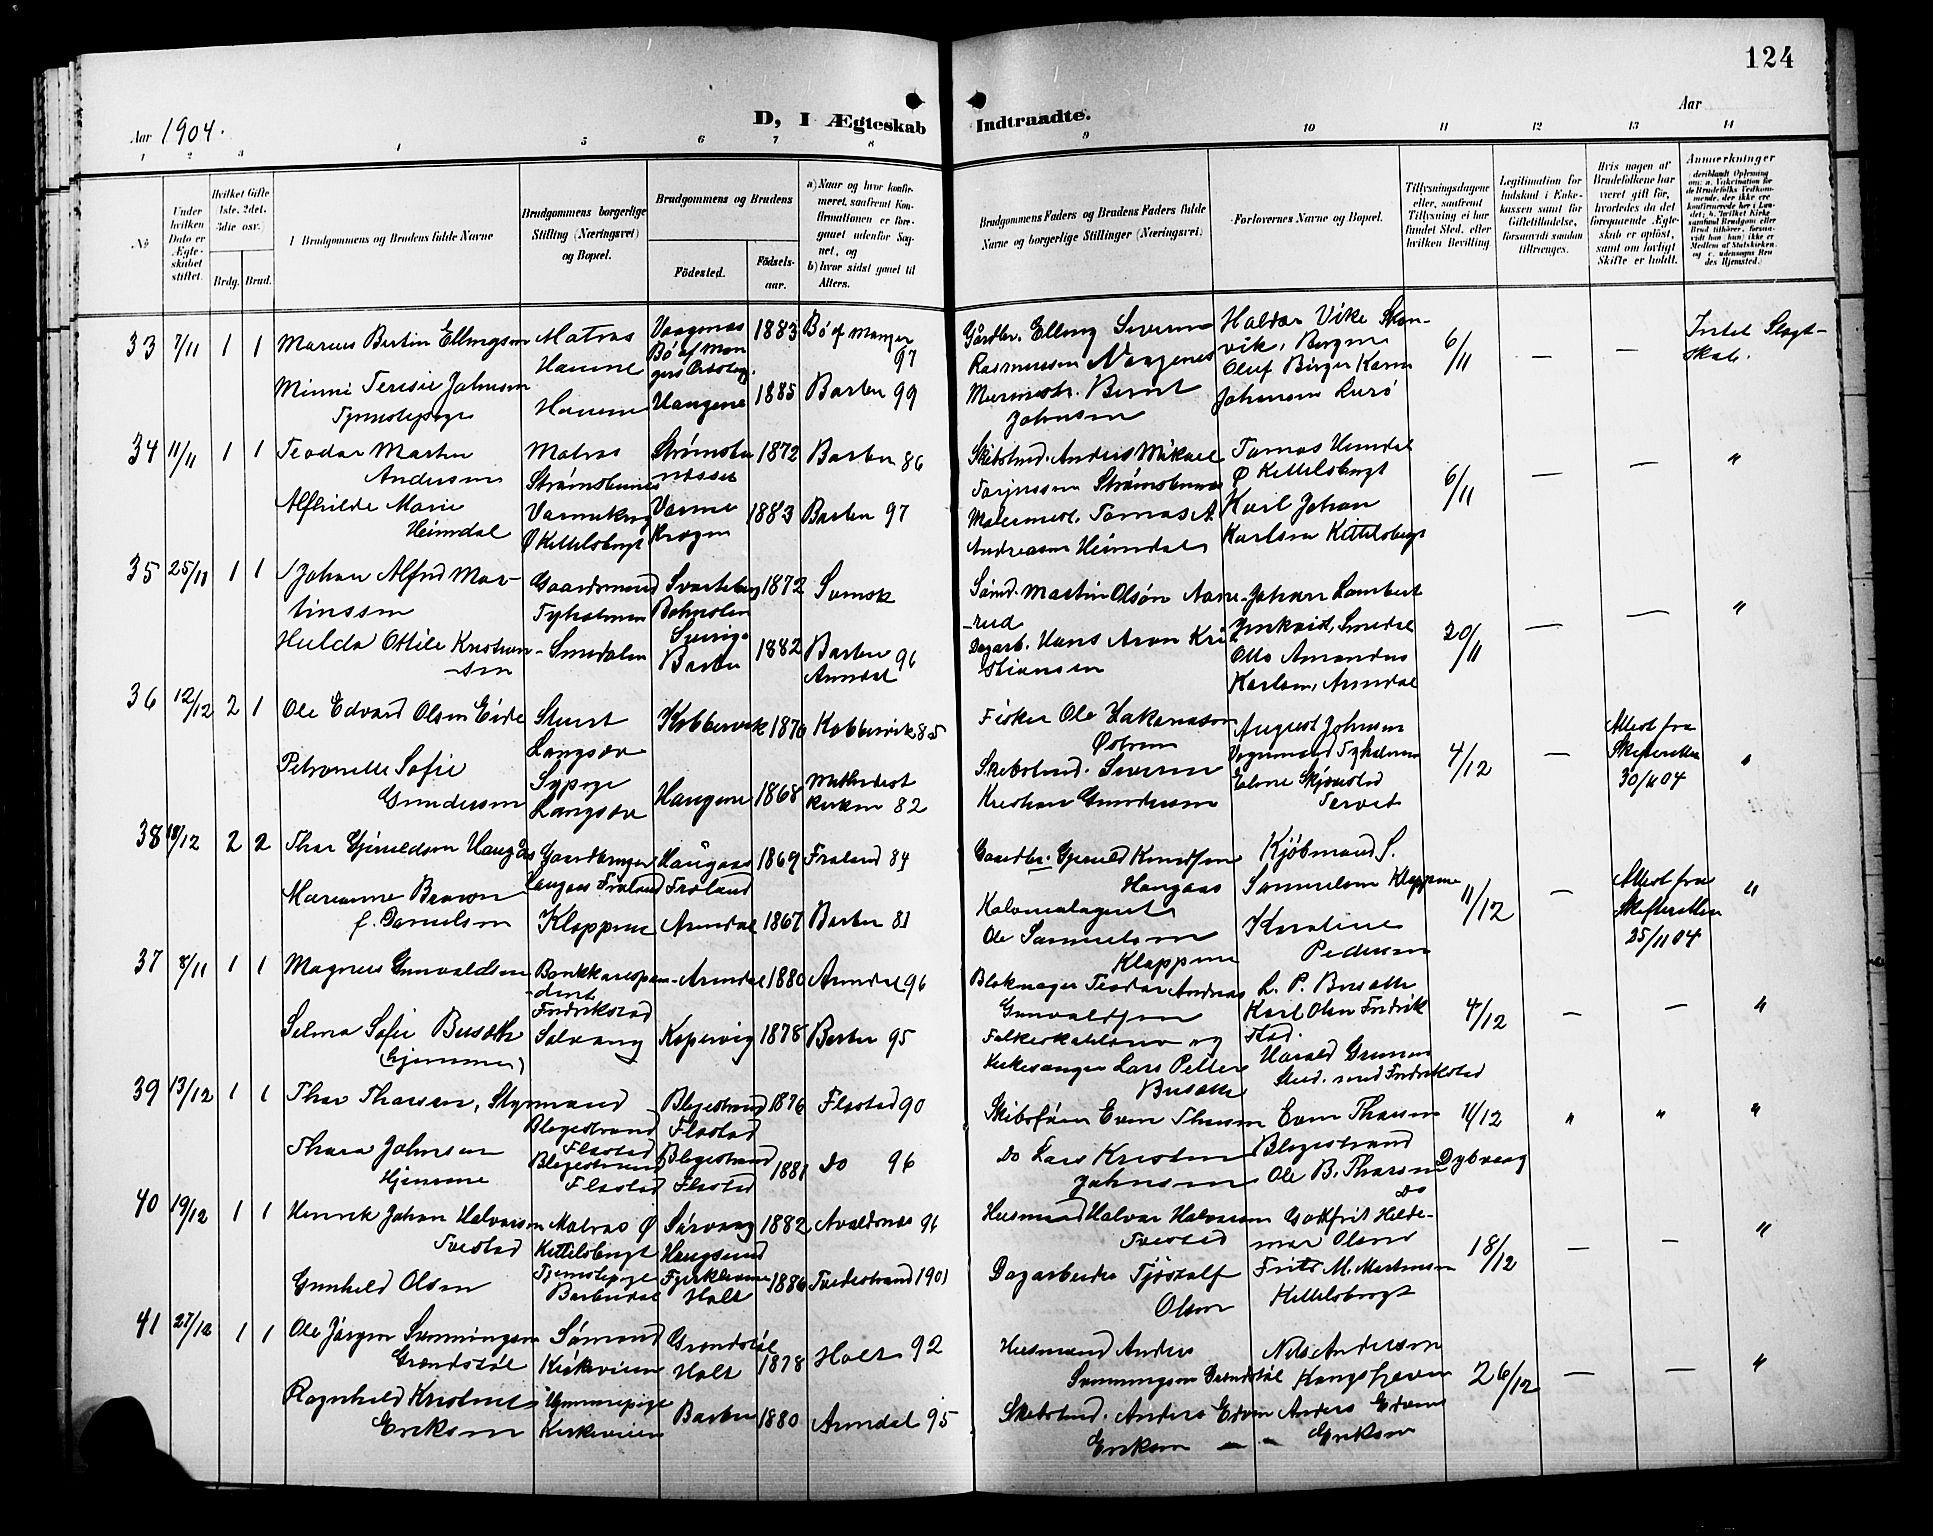 124
Aar 1904.
D, I Ægteskab Indtraadte.
Aar
1 2 3 4 5 6 7 8 9 10 11 12 13 14
No
Under hvilken Dato er Ægteskabet stiftet.
Hvilket Gifte 1ste, 2det, 3die osv.)
Brdg. Brud.
Brudgommens og Brudens fulde Navne
Brudgommens borgerlige Stilling (Næringsvei) og Bopæl.
Brudgommens og Brudens
Födested.
Födselsaar.
a) Naar og hvor konfirmeret, saafremt Konfirmationen er foregaaet udenfor Sognet, og
b) hvor sidst gaaet til Alters.
Brudgommens Faders og Brudens Faders fulde Navne og borgerlige Stillinger (Næringsvei)
Forlovernes Navne og Bopæl.
Tillysningsdagene eller, saafremt Tillysning ei har fundet Sted, efter hvilken Bevilling
Legitimation for Indskud i Enkekassen samt for Giftetilladelse, forsaavidt saadan tiltrænges.
Hvis nogen af Brudefolkene har været gift før, hvorledes da det foregaaende Ægteskab er oplöst, samt om lovligt Skifte er holdt.
Anmærkninger
33 7/11 1 1 Marius Bertin Ellingsen Matros Vaagenes 1883 Bø af Manger 97
Gårdbr. Elling Severin Rasmussen Vaagenes
Haldor Vike Skonvik, Bergen
6/11 — — Intet Slægtskab.
Minni Teresie Johnsen Tjenestepige
Havene Haugene 1885 Barbu 99
Murmestr. Bernt Johnsen
Oluf Birger Karm Johansen Lurø
34 11/11 1 1 Teodor Martin Andersen
Matros Strømsbunes Strømsbunesset 1872 Barbu 86
Skibstmd. Anders Mikael Torjussen Strømsbunes
Tomas Heimdal Ø Kittelsbugt
6/11 — — "
Alfhilde Marie Heimdal
Ø Kittelsbugt Kragerø 1883 Barbu 97
Malermest. Tomas A. Andreasen Heimdal
Karl Johan Karlsen Kittelsbugt
35 25/11 1 1 Johan Alfred Martinssen
Gaardsmand Tyholmen 1872 Svensk
Sømd. Martin Olsøn
Johan Lambert
20/11 — — "
Hulda Otilie Kristiansen
Smedalen Barbu 1882 Barbu Arendal 96
Dagarb. Hans Aron Kristiansen
Otto Amandus Karlsen, Arendal
36 12/12 2 1 Ole Edvard Olsen Eide
Stuert Langsæv Kobbervik 1870 Kobbervik 85
Fisker Ole Hakenson Østrem
August Johnsen Vognmand Tyholmen
4/12 — Attest fra Skifteretten 30/11 04 "
Petronelle Sofie Gundersen
Sypige Langsæv Haugene 1868 Methodist kirken 82
Skibstmd. Severin Kristian Gundersen
Skjønstad Tervet
38 18/12 2 2 Thor Gjeruldsen Haugaas
Gaardbruger Haugaas Froland Haugaas Froland 1869 Froland 84
Gaardbr. Gjeruld Knudsen Haugaas
Kjøbmand S. Samuelsen Kloppene
11/12 — Attest fra Skifteretten 25/11 04 "
Marianne Brown f. Danielsen
Kloppene Arendal 1867 Barbu 81
Kolonialagent Ole Samuelsen Kloppene
Karoline Pedersen
37 8/11 1 1 Magnus Gunvaldsen
Bankkorespondent Fredrikstad Arendal 1880 Arendal 96
Blokmager Teodor Andreas Gunvaldsen
L. P. Busæth
Karl Olsen Fredrikstad.
4/12 — — "
Selma Sofie Busæth (Hjemme)
Solvang Kopervig 1878 Barbu 95
Kirkesanger Lars Petter Busæth
Harald Stud. med Fredrikstad
39 13/12 1 1 Thor Thorsen, Styrmand
Blegestrand Flosta Blegestrand Flostad 1876 Flostad 90
Skibsfører Even Thorsen
Even Thorsen Blegestrand
11/12 " " "
Thora Johnsen Hjemme
Blegestrand Flostad Blegestrand Flostad 1881 do 96
Do Lars Kristen Johnsen
Ole B. Thorsen Do
Dybvaag
40 19/12 1 1 Henrik Johan Halvorsen Tvestad
Matros Ø Kittelsbugt Haugesund 1882 Avaldsnes 96
Husmand Halvor Halvorsen Tvestad
Godtfrit Hildemar Olsen
18/12 — — "
Gunhild Olsen
Tjenestepige Barbudal Holt 1886 Tvedestrand 1901
Dagarbeider Tjøstolf Olsen
Frits M. Martinsen Kittelsbugt
41 27/12 1 1 Ole Jørgen Sunningsen Grøndstøl
Sømand Kirkeveien Grøndstøl Holt 1878 Holt 92
Husmand Anders Sunningsen Grøndstøl
Nils Anderson Kongshavn
26/12 — — "
Ragnhild Kristine Eriksen
Hjemmepige Kirkeveien Barbu 1880 Arendal 95
Skibstmd. Anders Edvin Eriksen
Anders Edvin Eriksen